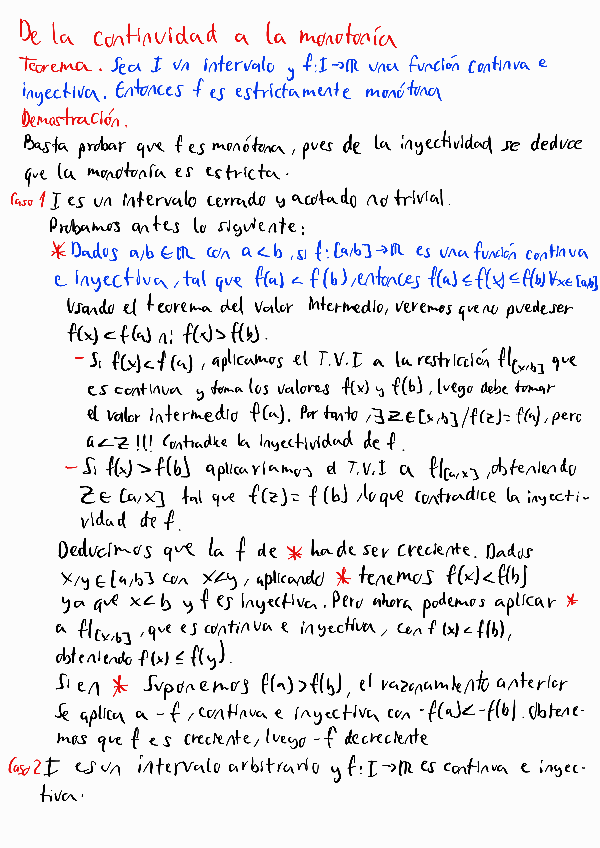 De la continuidad a la monotonía
Teorema. Sea I un intervalo y f: I→ℝ una función continua e
inyectiva. Entonces f es estrictamente monótona
Demostración.
Basta probar que f es monótona, pues de la inyectividad se deduce
que la monotonía es estricta.
Caso 1 I es un intervalo cerrado y acotado no trivial.
Probamos antes lo siguiente:
* Dados a,b ∈ ℝ con a<b, si f: [a,b]→ℝ es una función continua
e inyectiva, tal que f(a) < f(b), entonces f(a) ≤ f(x) ≤ f(b) ∀x∈[a,b]
Usando el teorema del valor intermedio, veremos que no puede ser
f(x) < f(a) ni f(x) > f(b).
- Si f(x) < f(a), aplicamos el T.V.I a la restricción f|[x,b] que
es continua y toma los valores f(x) y f(b), luego debe tomar
el valor intermedio f(a). Por tanto, ∃ z∈[x,b] / f(z) = f(a), pero
a<z !!! Contradice la inyectividad de f.
- Si f(x) > f(b) aplicaríamos el T.V.I a f|[a,x], obteniendo
z ∈ [a,x] tal que f(z) = f(b), lo que contradice la inyecti-
vidad de f.
Deducimos que la f de * ha de ser creciente. Dados
x,y ∈ [a,b] con x<y, aplicando * tenemos f(x) < f(b)
ya que x<b y f es inyectiva. Pero ahora podemos aplicar *
a f|[x,b], que es continua e inyectiva, con f(x) < f(b),
obteniendo f(x) ≤ f(y).
Si en * suponemos f(a) > f(b), el razonamiento anterior
se aplica a -f, continua e inyectiva con -f(a) < -f(b). Obtene-
mos que f es creciente, luego -f decreciente
Caso 2 I es un intervalo arbitrario y f: I→ℝ es continua e inyec-
tiva.